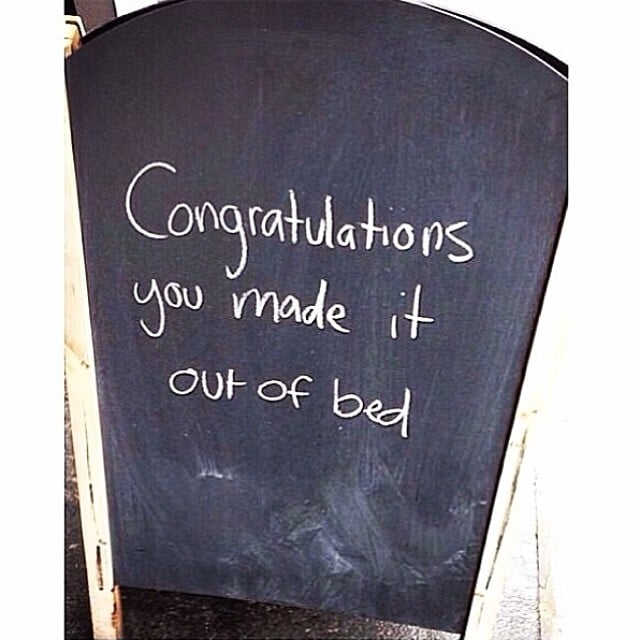 Congratulations
you made it
out of bed